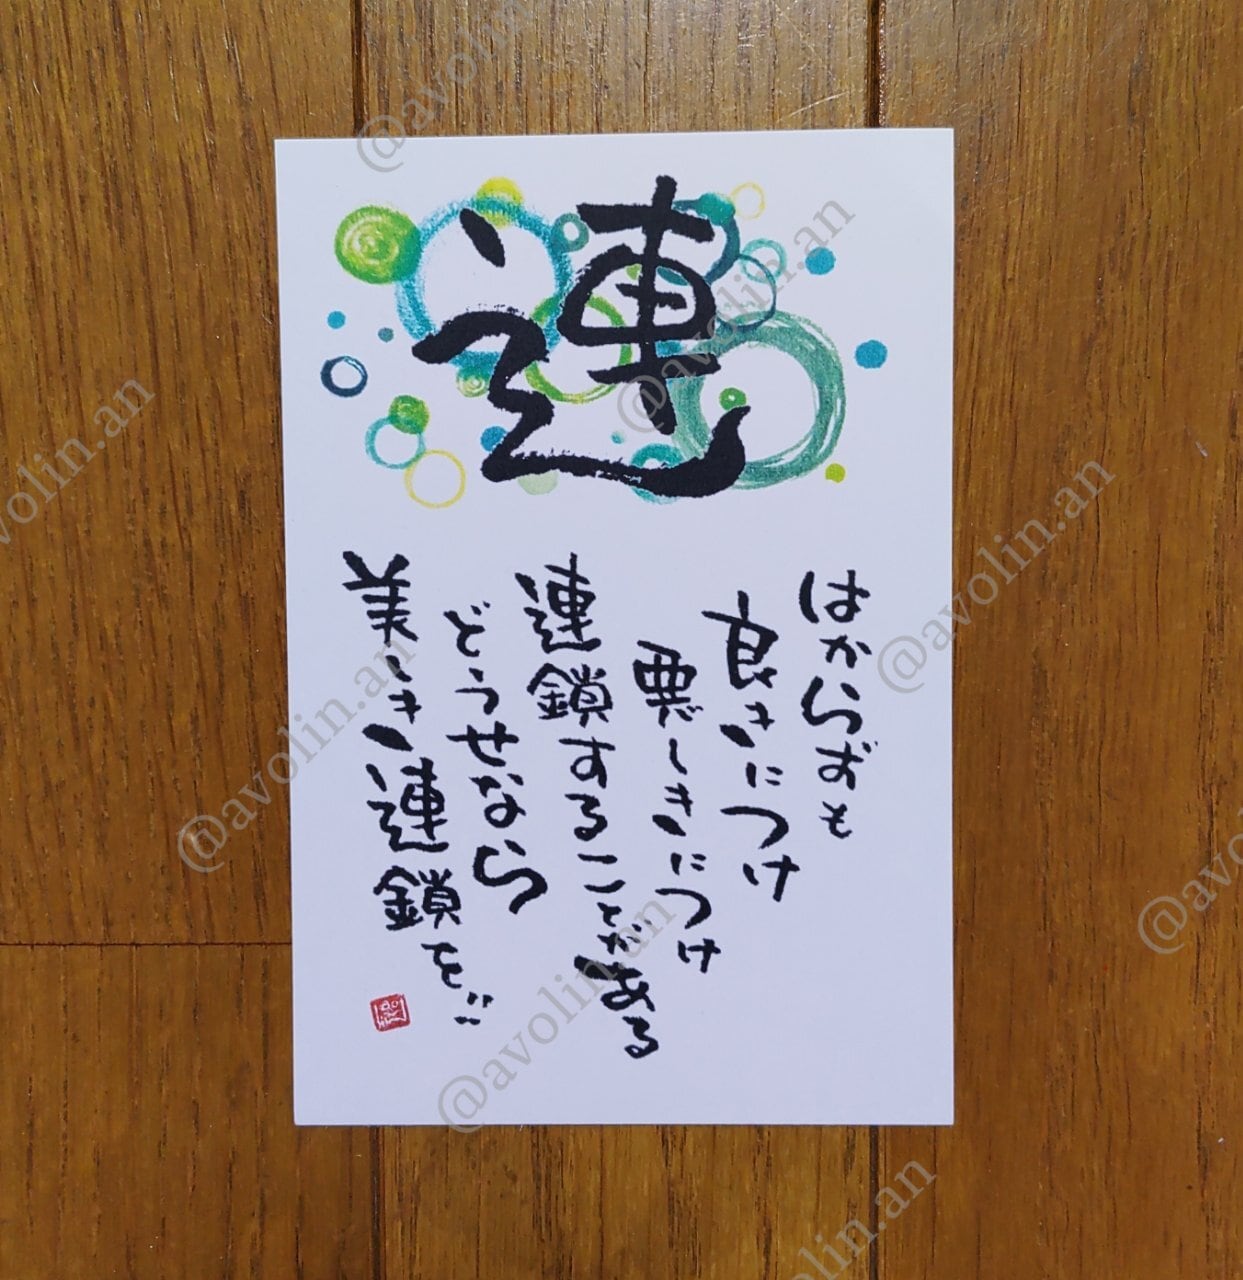 連
はからずも
良きにつけ
悪しきにつけ
連鎖することがある
どうせなら
美しき連鎖を‼
@avolin.an
@avolin.an
@avolin.an
@avolin.an
@avolin.an
@avolin.an
@avolin.an
@avolin.an
@avolin.an